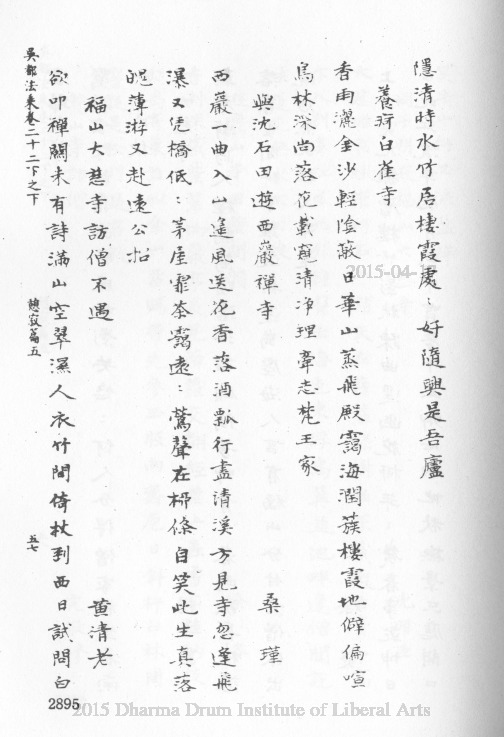 隱清時水竹居棲霞處〻好隨興是吾廬
養痾白雀寺
香雨灑金沙輕陰散日華山蒸飛殿靄海濶簇樓霞地僻偏喧
鳥林深尚落花載窺清淨理牽志梵王家
與沈石田遊西巖禪寺 桑瑾
西巖一曲入山遙風送花香落酒瓢行盡清溪方見寺忽逢飛
瀑又凭橋低〻茅屋霏茶靄遠〻鶯聲在柳條自笑此生真落
魄薄游又赴遠公招
福山大慈寺訪僧不遇 黄清老
欲叩禪關未有詩滿山空翠濕人衣竹間倚杖到西日試問白
吳都法乘卷二十二下之下 憩寂篇五 五七
2895
2015-04-
2015 Dharma Drum Institute of Liberal Arts